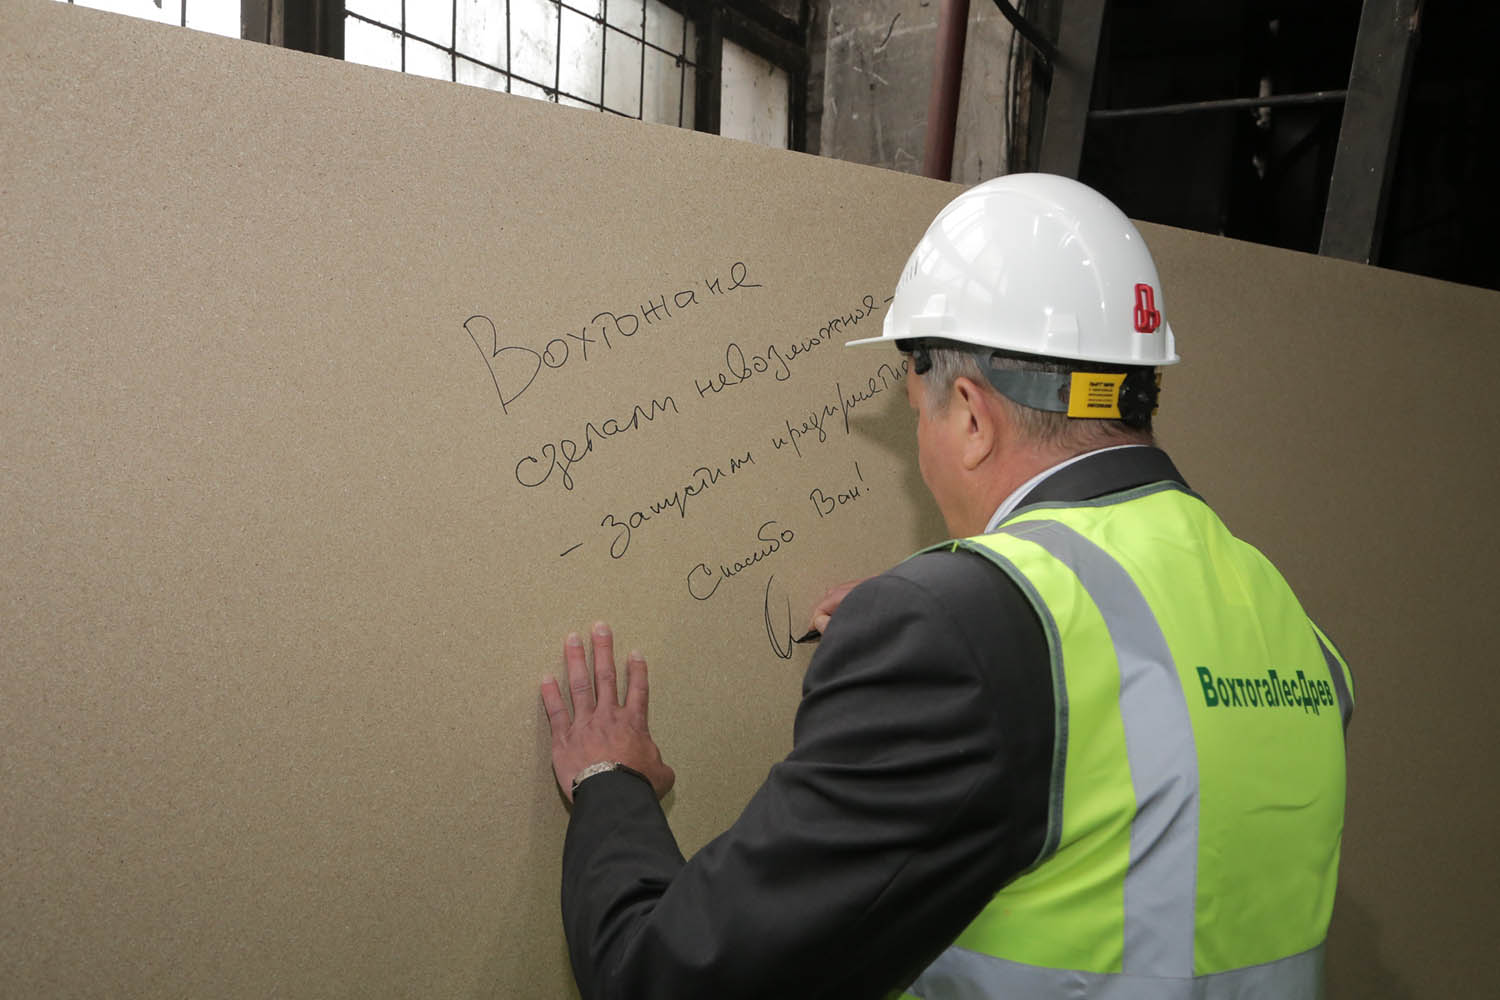 Вохтожане
сделали невозможное -
- запустили предприятие
Спасибо Вам!
ВохтогаЛесДрев